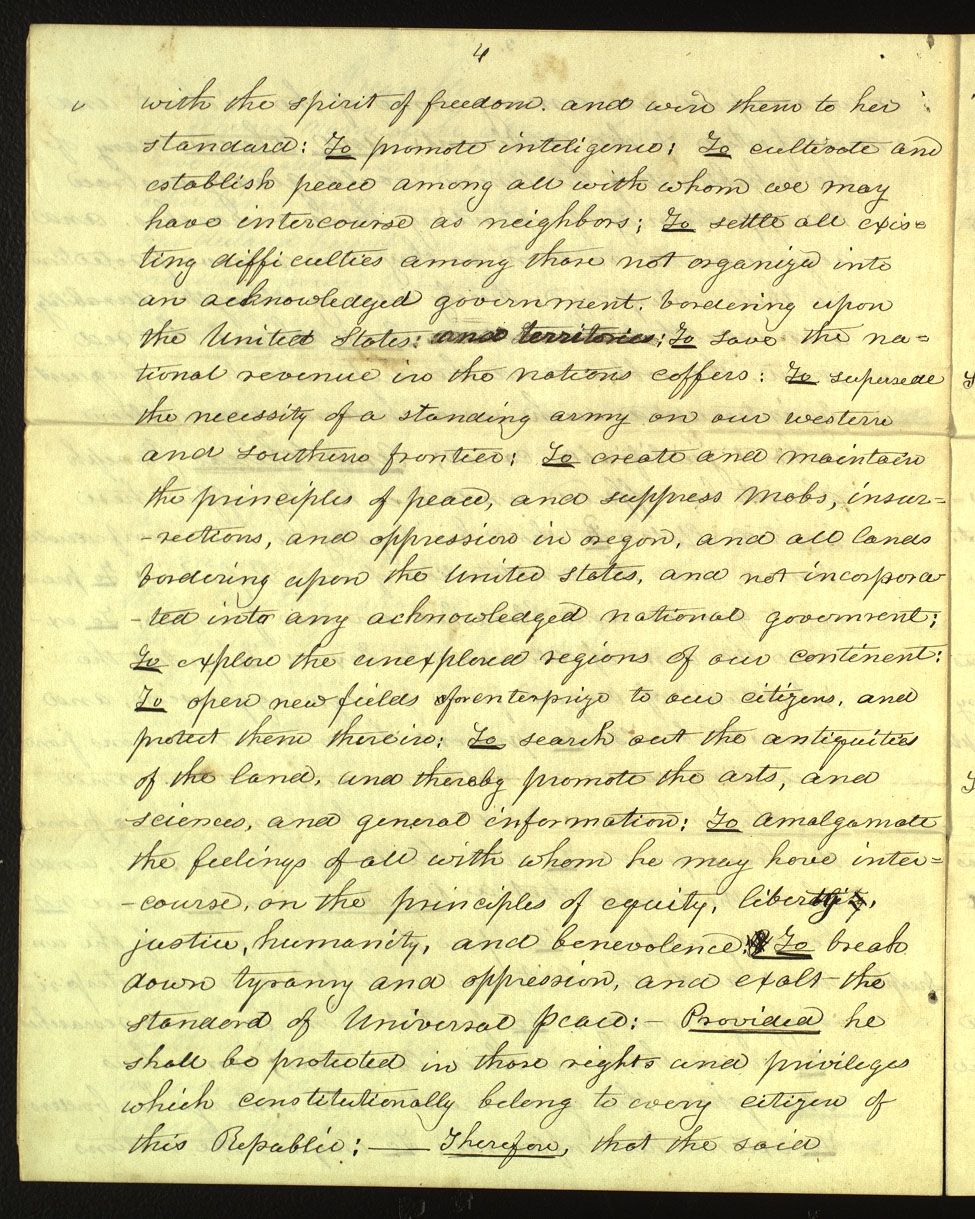 4
with the spirit of freedom. and win them to her
standard: To promote inteligence: To cultivate and
establish peace among all with whom we may
have intercourse as neighbors; To settle all exis=
ting difficulties among those not organized into
an acknowledged government. bordering upon
the United States: and territories; To save the na=
tional revenue in the nations coffers: To supersede
the necessity of a standing army on our western
and southern frontier: To create and maintain
the principles of peace, and suppress mobs, insur=
-rections, and oppression in oregon, and all lands
bordering upon the United States, and not incorpora
-ted into any acknowledged national government;
To explore the unexplored regions of our continent:
To open new fields for enterprize to our citizens, and
protect them therein: To search out the antiquities
of the land, and thereby promote the arts, and
sciences, and general information: To amalgamate
the feelings of all with whom he may have inter=
-course, on the principles of equity, liberty,
justice, humanity, and benevolence: To break
down tyranny and oppression, and exalt the
standard of Universal peace:— Provided he
shall be protected in those rights and privileges
which constitutionally belong to every citizen of
this Republic: — Therefore, that the said